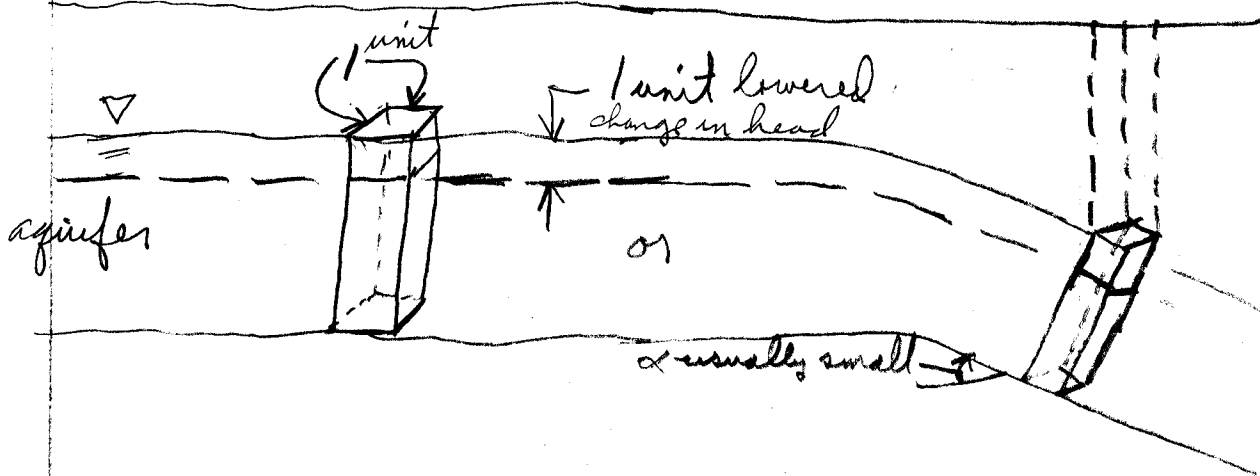 1 unit
1 unit lowered
change in head
aquifer
or
α usually small